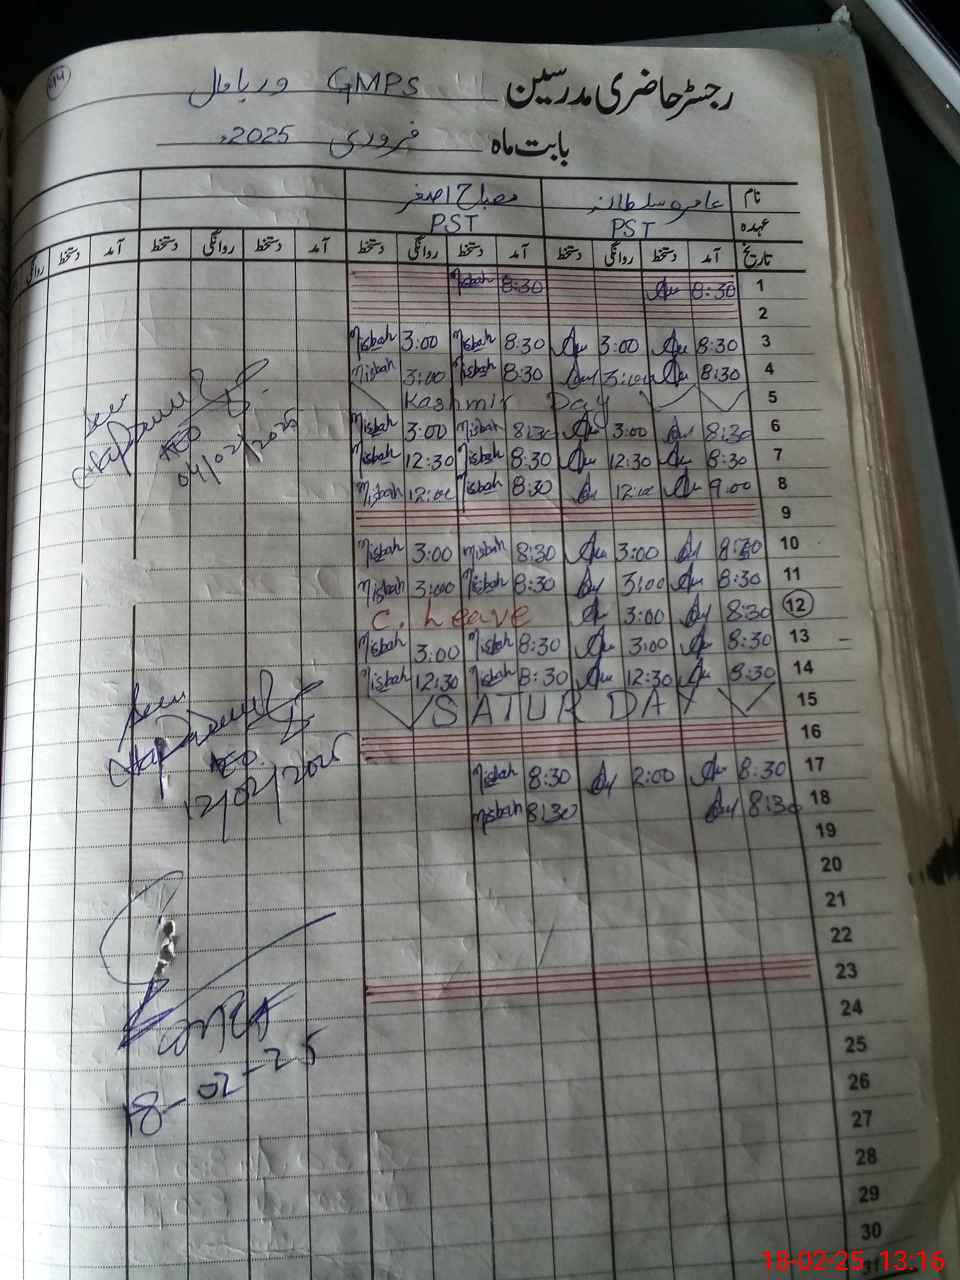 414
رجسٹر حاضری مدرسین GMPS وریامال
بابت ماہ فروری 2025ء
نام عامرہ سلطانہ مصباح اصغر
عہدہ PST PST
تاریخ آمد دستخط روانگی دستخط آمد دستخط روانگی دستخط آمد دستخط روانگی دستخط آمد دستخط روانگی
1 8:30 8:30 Misbah
2
3 8:30 3:00 8:30 Misbah 3:00 Misbah
4 8:30 3:00 8:30 Misbah 3:00 Misbah
5 Kashmir Day
6 8:30 3:00 8:30 Misbah 3:00 Misbah
7 8:30 12:30 8:30 Misbah 12:30 Misbah
8 9:00 12:00 8:30 Misbah 12:00 Misbah
9
10 8:30 3:00 8:30 Misbah 3:00 Misbah
11 8:30 3:00 8:30 Misbah 3:00 Misbah
12 8:30 3:00 C. Leave
13 8:30 3:00 8:30 Misbah 3:00 Misbah
14 8:30 12:30 8:30 Misbah 12:30 Misbah
15 SATURDAY
16
17 8:30 2:00 8:30 Misbah
18 8:30 8:30 Misbah
19
20
21
22
23
24
25
26
27
28
29
30
31
Seen
AEO
04/02/2025
Seen
AEO
12/02/2025
18-02-25
18-02-25 13:16